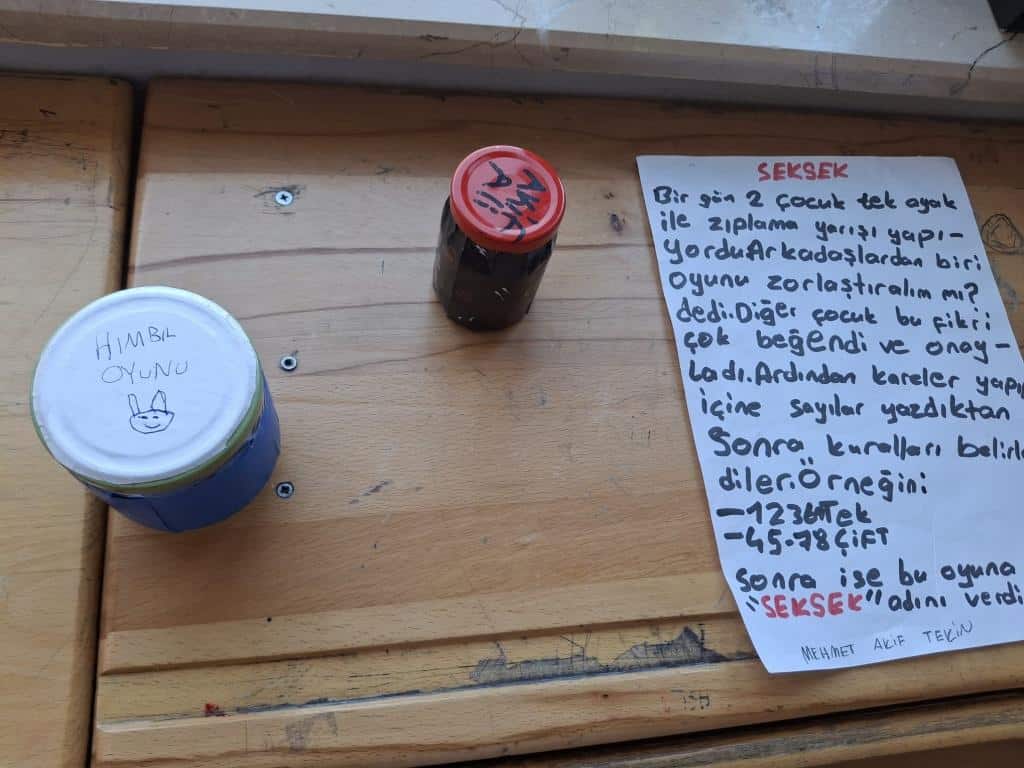 HIMBIL
OYUNU
SEKSEK
Bir gün 2 çocuk tek ayak
ile zıplama yarışı yapı-
yordu.Arkadaşlardan biri
oyunu zorlaştıralım mı?
dedi.Diğer çocuk bu fikri
çok beğendi ve onay-
ladı.Ardından kareler yapıp
içine sayılar yazdıktan
Sonra kuralları belirle
diler.Örneğin:
-45-78ÇİFT
Sonra ise bu oyuna
"SEKSEK" adını verdi
MEHMET AKİF TEKİN